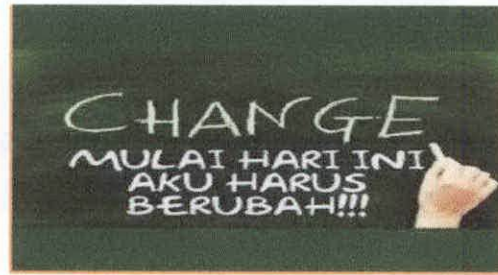 CHANGE
MULAI HARI INI
AKU HARUS
BERUBAH!!!